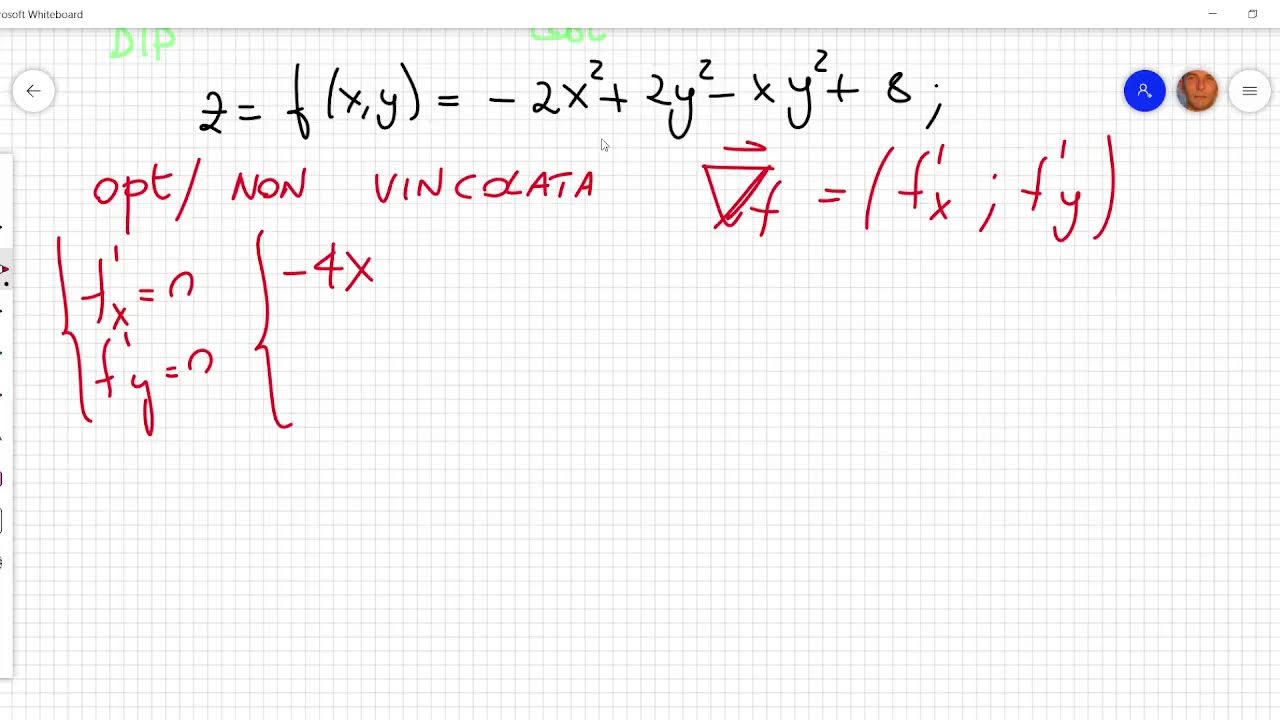 rosoft Whiteboard
DIP
z = f(x,y) = - 2x² + 2y² - xy² + 8 ;
opt/ NON VINCOLATA
∇⃗f = (f'x ; f'y)
{ f'x = 0
f'y = 0
{ -4x